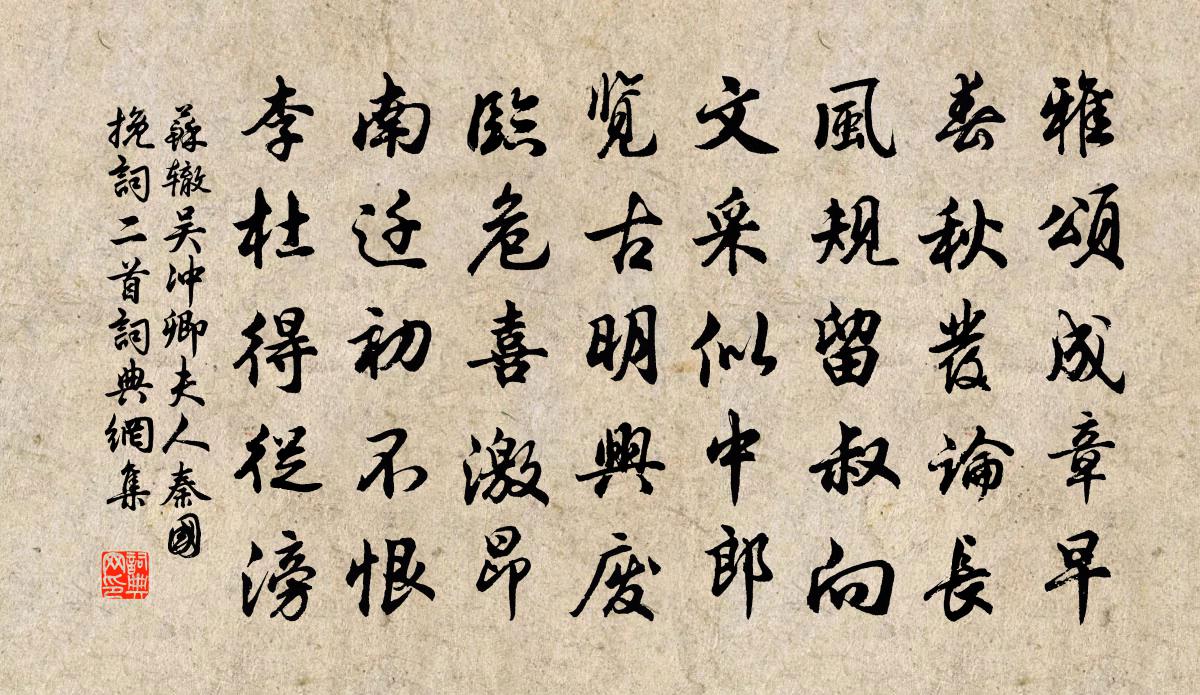 雅頌成章早
春秋發論長
風規留叔向
文采似中郎
覽古明興廢
臨危喜激昂
南迁初不恨
李杜得從滂
蘇辙吴沖卿夫人秦國
挽詞二首詞典網集
詞典网印